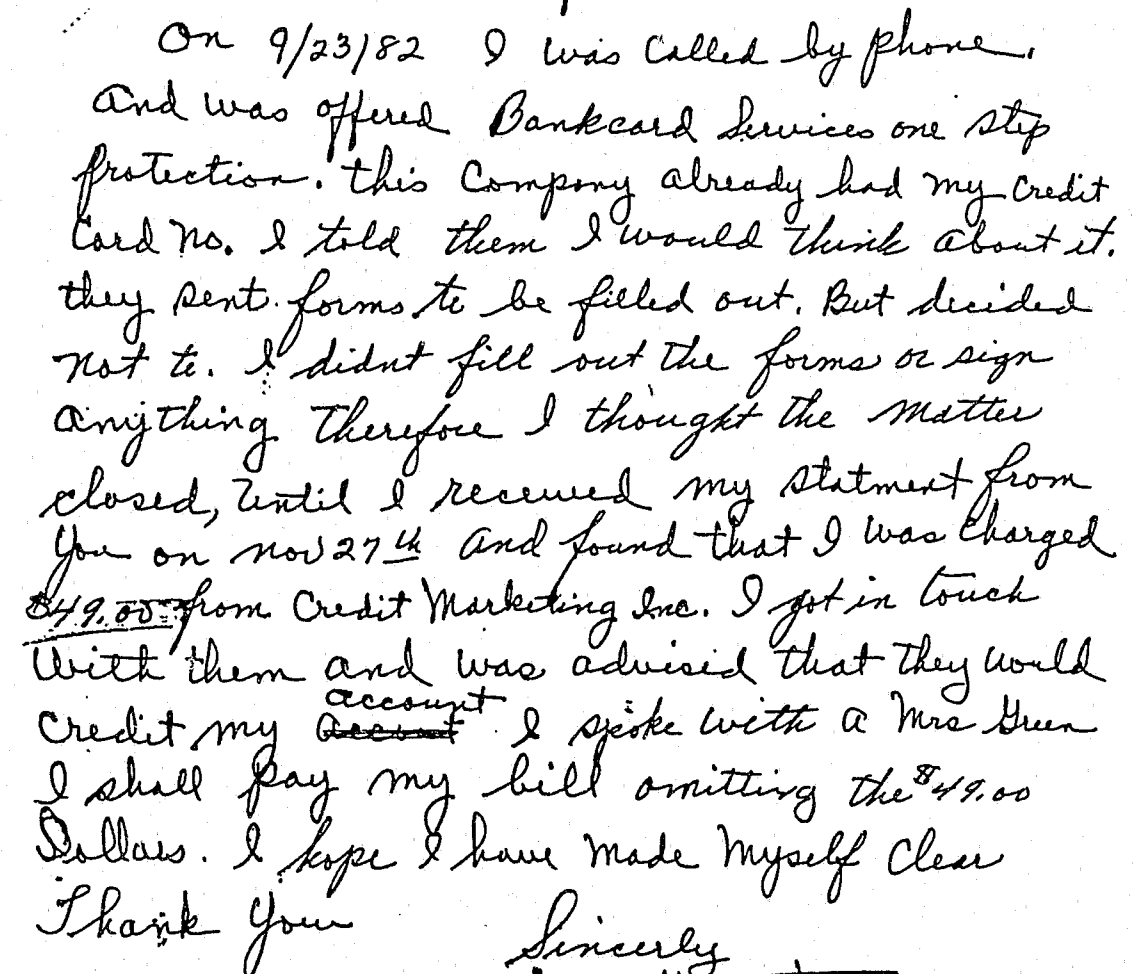 On 9/23/82 I was called by phone.
and was offered Bankcard Services one step
protection. this Company already had my credit
Card No. I told them I would think about it.
they sent forms to be filled out. But decided
not to. I didnt fill out the forms or sign
anything therefore I thought the matter
closed, until I received my statment from
you on nov 27th and found that I was charged
$49.00 from Credit Marketing Inc. I got in touch
with them and was advised that they would
account
credit my account I spoke with a Mrs Green
I shall pay my bill omitting the $49.00
Dollars. I hope I have made myself clear
Thank You
Sincerly